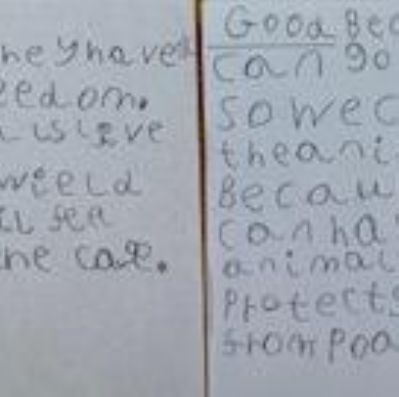 hey have
eedom.
wield
sea
he care.
Good Bec
can go
so we c
the ani
Becau
can ha
animal
protects
from poa